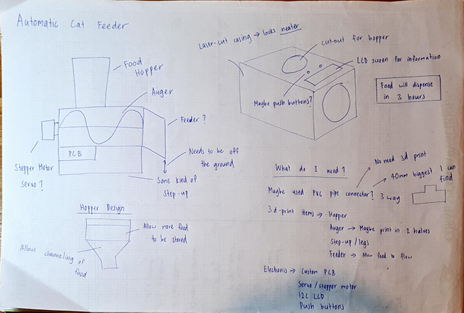 Automatic Cat Feeder
Food
Hopper
Auger
Feeder ?
Stepper Motor
Servo ?
PCB
Needs to be off
the ground
Some kind of
step-up
Hopper Design
Allow more food
to be stored
Allows channeling of
food
Laser-cut casing → looks neater
cut-out for hopper
LCD screen for information
Maybe push buttons?
Food will dispense
in 3 hours
What do I need ?
No need 3d-print
Maybe used PVC pipe connector? 3 way
40mm biggest I can
find
3d-print items → Hopper
Auger → Maybe print in 2 halves
Step-up / legs
Feeder → food to flow
Electronics → Custom PCB
Servo / stepper motor
I2C LCD
Push buttons